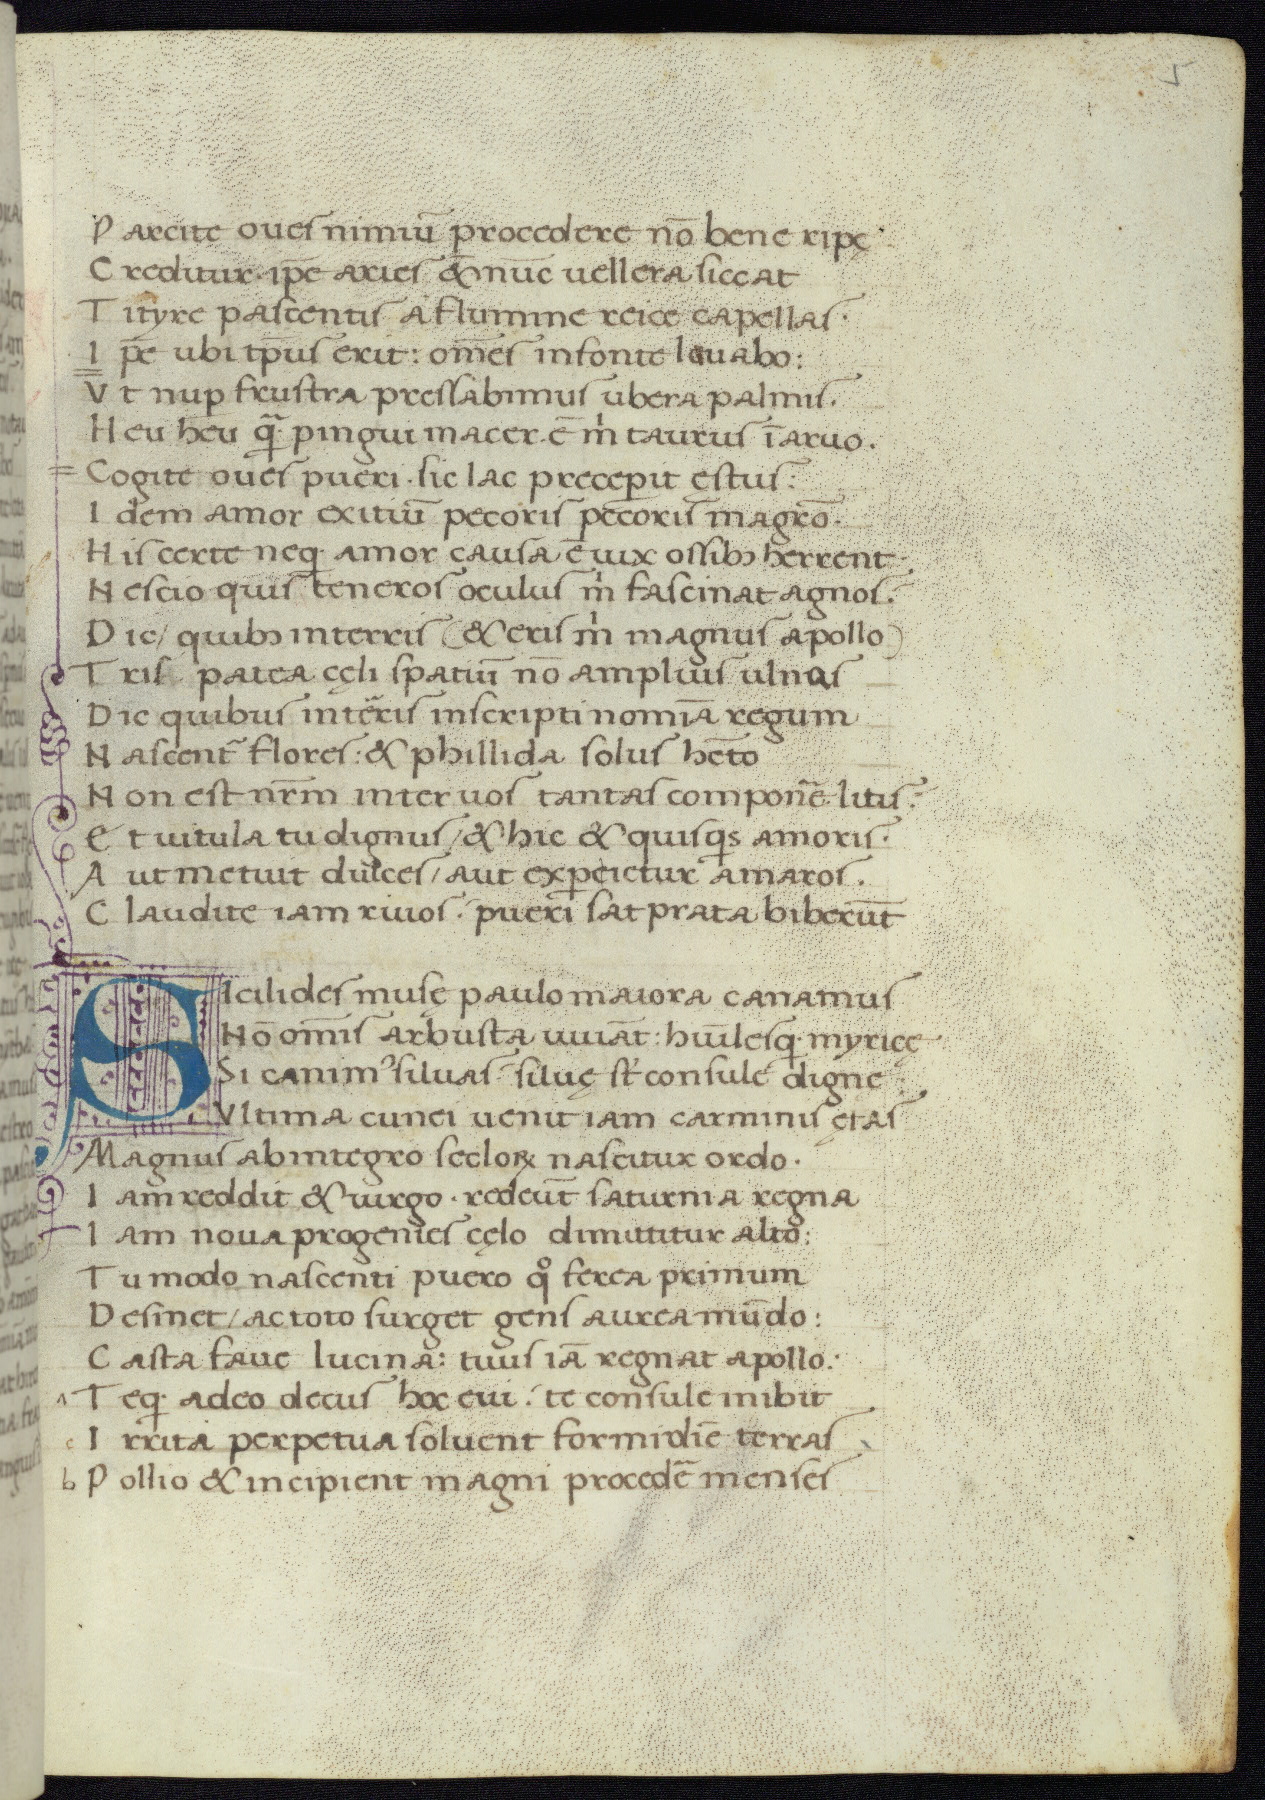 5
P arcite oues nimiū procedere nō bene ripę
C reditur. ip̄e aries & nūc uellera siccat
T ityre pascentis a flumine reice capellas.
I p̄e ubi tp̄us erit: om̄es in fonte lauabo:
V t nup frustra pressabimus ubera palmis.
H eu heu q̄. pingui macer. ē m̍ taurus ī aruo.
Cogite oues pueri. sic lac precepit ęstus:
I dem amor exitiū pecoris pecoris magr̄o.
H is certe neq. amor causa ē uix ossibꝫ herrent.
N escio quis teneros oculus m̍ fascinat agnos.
D ic/ quibꝫ in terris (& eris m̍ magnus apollo)
T ris patea cęli spatiū nō amplius ulnas
D ic quibus in teris inscripti nomīa regum
N ascent̄ flores: & phillida solus hēto
N on est nr̄m inter uos tantas componē litis.
E t uitula tu dignus/ & hic & quisqs amoris.
A ut metuit dulces/ aut expeietur amaros.
C laudite iam riuos. pueri sat prata biberūt
S Icilides musę paulo maiora canamus
Nō om̄is arbusta iuuāt: huīlesq. myricę
Si canimꝰ siluas siluę st̄ consule digne
Vltima cumei uenit iam carminis ętas
Magnus ab integro secloꝝ nascitur ordo.
I am reddit & uirgo. redeūt saturnia regna
I am noua progenies cęlo dimittitur alto:
T u modo nascenti puero qͦ ferea primum
D esinet/ ac toto surget gens aurea mūdo:
C asta faue lucina: tuus iā regnat apollo.
a T eq. adeo decus hoc eui. te consule inibit
c I rrita perpetua soluent formidīe terras
b P ollio & incipient magni procedē menses